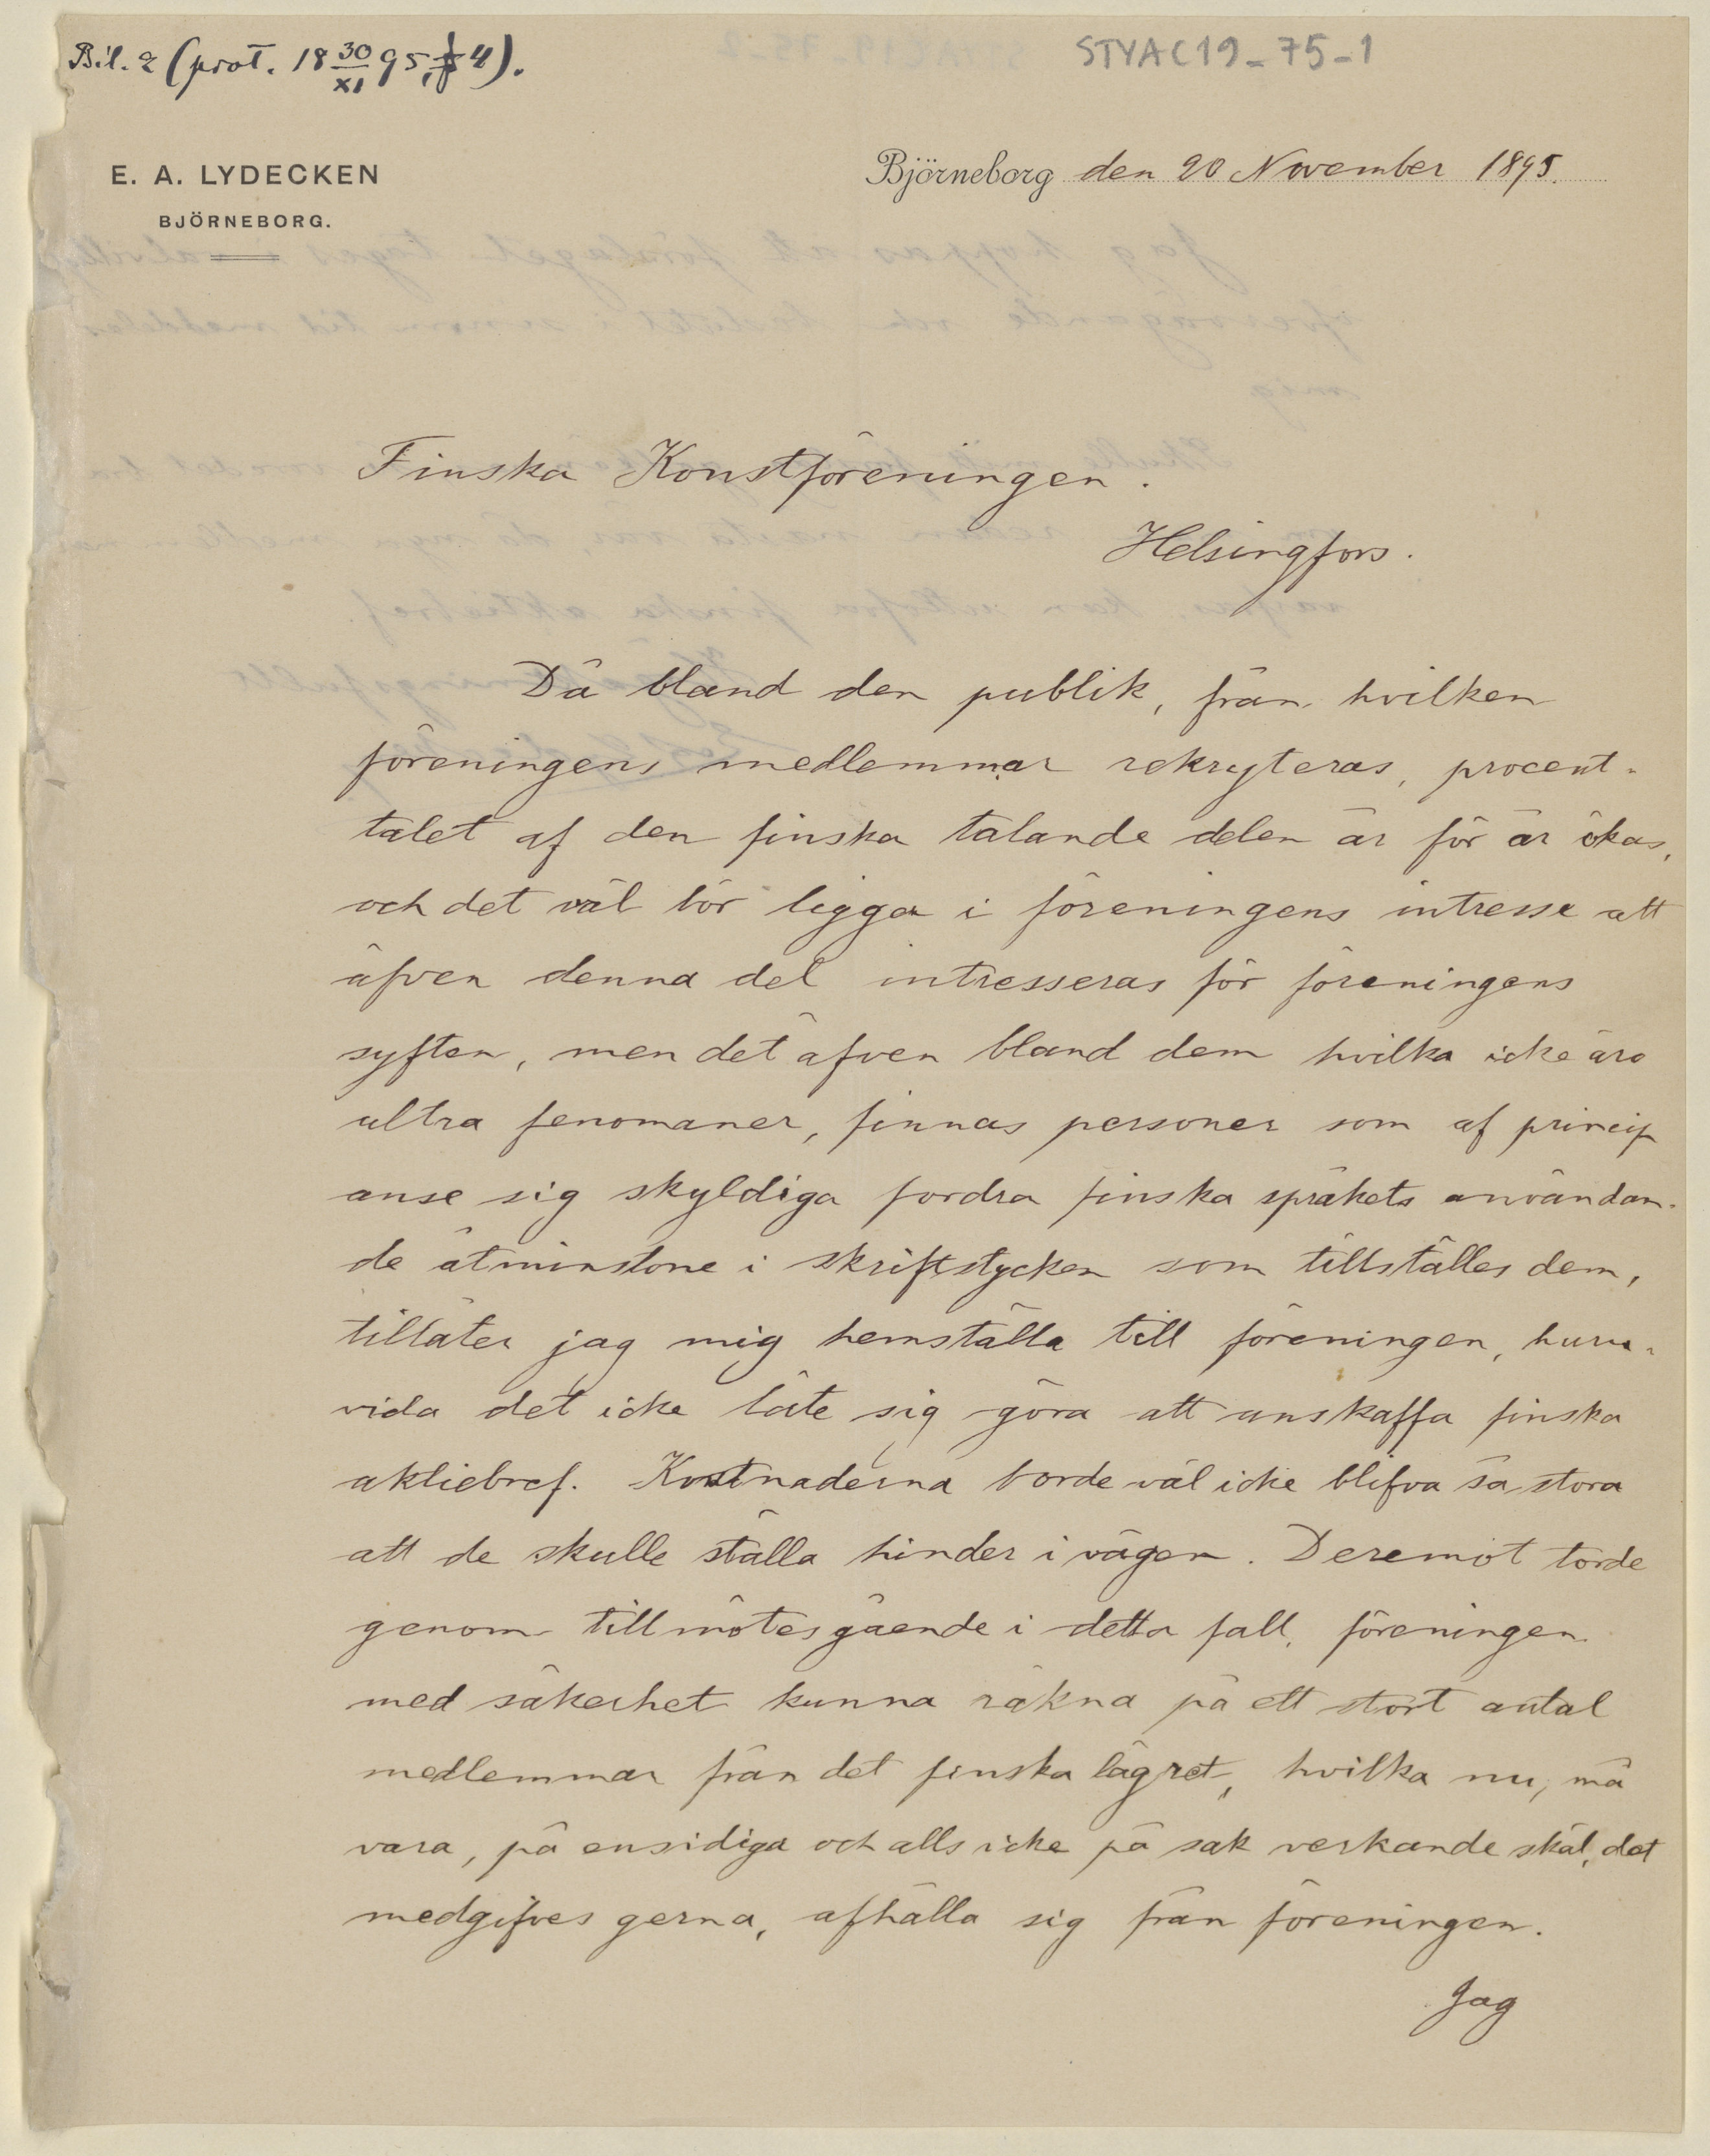 Bil. 2 (prot. 18 30/XI 95, § 4).
STYAC19_75-1
E. A. LYDECKEN
BJÖRNEBORG.
Björneborg den 20 November 1895.
Finska Konstföreningen.
Helsingfors.
Då bland den publik, från hvilken
föreningens medlemmar rekryteras, procent-
talet af den finska talande delen år för år ökas,
och det väl bör ligga i föreningens intresse att
äfven denna del intresseras för föreningens
syften, men det äfven bland dem hvilka icke äro
ultra fenomaner, finnas personer som af princip
anse sig skyldiga fordra finska språkets användan-
de åtminstone i skriftstycken som tillställes dem,
tillåter jag mig hemställa till föreningen, huru-
vida det icke låte sig göra att anskaffa finska
aktiebref. Kostnaderna borde väl icke blifva så stora
att de skulle ställa hinder i vägen. Deremot torde
genom tillmötesgående i detta fall, föreningen
med säkerhet kunna räkna på ett stort antal
medlemmar från det finska lägret, hvilka nu, må
vara, på ensidiga och alls icke på sak verkande skäl, det
medgifves gerna, afhålla sig från föreningen.
Jag